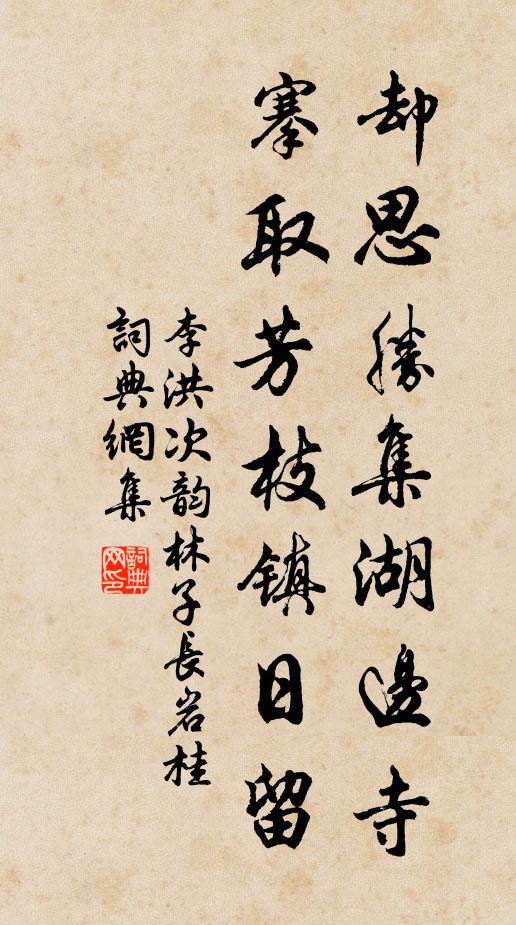 却思勝集湖邊寺
搴取芳枝镇日留
李洪次韵林子長岩桂
詞典網集
詞典网印